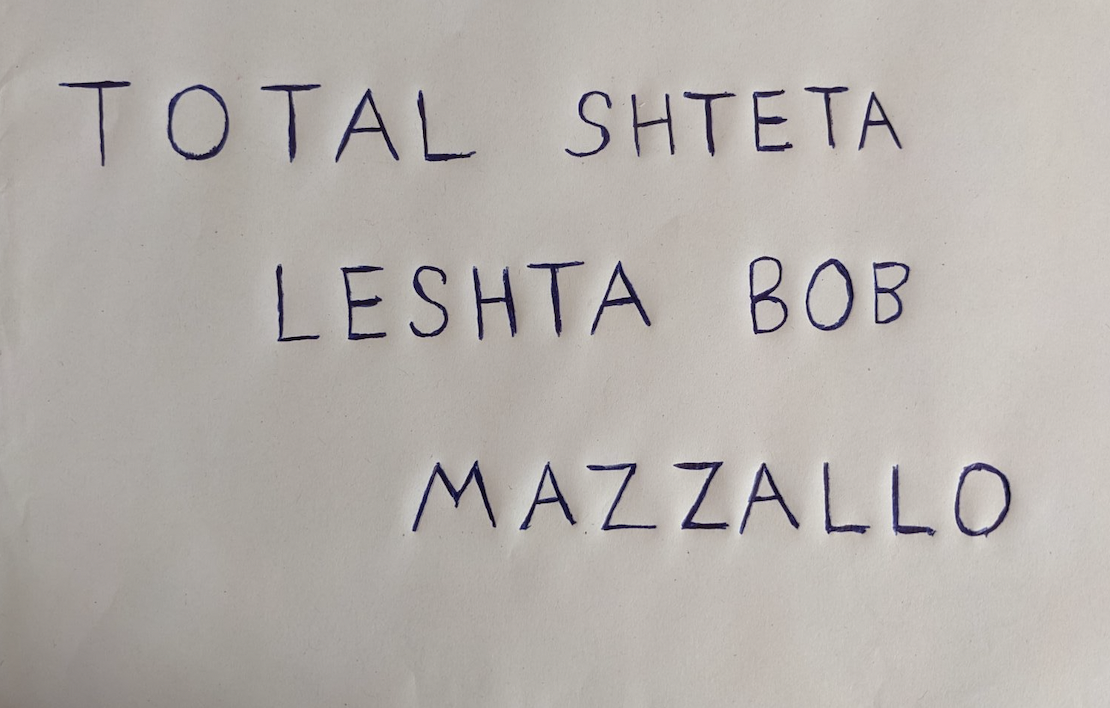 TOTAL SHTETA
LESHTA BOB
MAZZALLO